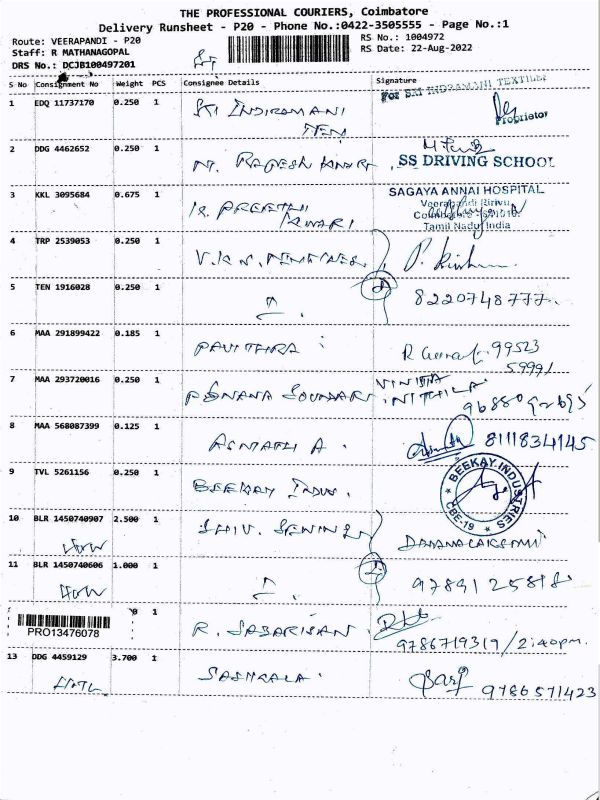 THE PROFESSIONAL COURIERS, Coimbatore
Delivery Runsheet - P20 - Phone No.:0422-3505555 - Page No.:1
Route: VEERAPANDI - P20
RS No.: 1004972
Staff: R MATHANAGOPAL
RS Date: 22-Aug-2022
DRS No.: DCJB100497201
S No Consignment No Weight PCS Consignee Details Signature
1 EDQ 11737170 0.250 1 SRI INDIRAMANI
TEX
For SRI INDRAMANI TEXTILES
Proprietor
2 DDG 4462652 0.250 1
SS DRIVING SCHOOL
3 KKL 3095684 0.675 1 K. PREETHI
SAGAYA ANNAI HOSPITAL
Veerapandi Pirivu
Coimbatore - 641019.
Tamil Nadu, India
4 TRP 2539053 0.250 1 V.K.N.
5 TEN 1916028 0.250 1
8220748777.
6 MAA 291899422 0.185 1 PAVITHRA
99523
59991
7 MAA 293720016 0.250 1
VINITHA
NITHILA
8 MAA 568087399 0.125 1 A.
8111834145
9 TVL 5261156 0.250 1 BEEKAY INDUS.
BEEKAY INDUSTRIES
CBE-19
10 BLR 1450740907 2.500 1 SHIV.
DHANALAKSHMI
11 BLR 1450740606 1.000 1
9789125818
1
PRO13476078
R. SABARISAN
9786719319/2:40pm.
13 DDG 4459129 3.700 1 SASIKALA
9786571423